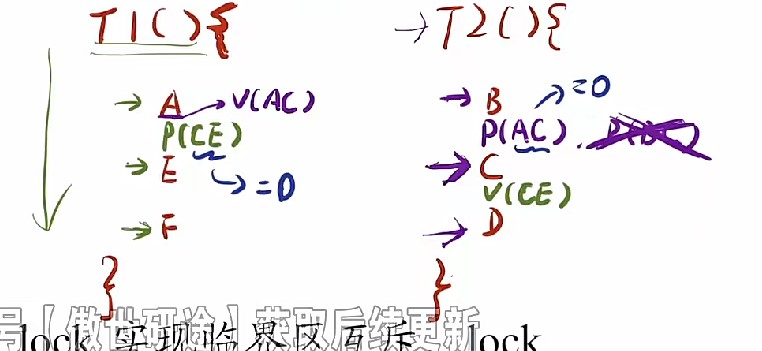 T1(){
A → V(AC)
P(CE)
E → =0
F
}
→ T2(){
→ B → =0
P(AC).
→ C
V(CE)
→ D
}
号【傲世研途】获取后续更新
lock 实现临界区互斥 lock